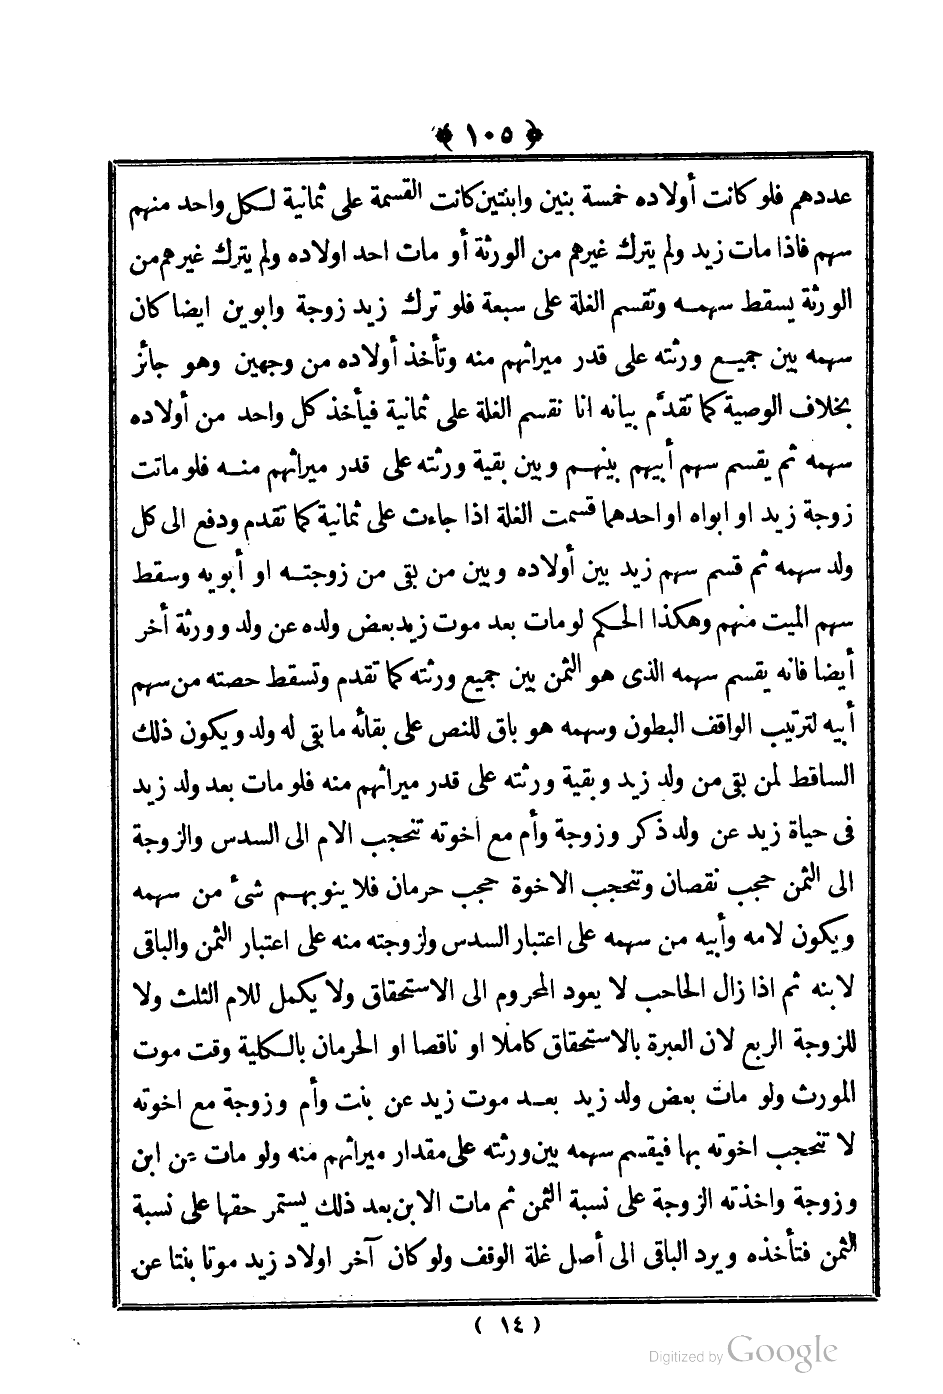 ﴿ ١٠٥ ﴾
عددهم فلو كانت أولاده خمسة بنين وابنتين كانت القسمة على ثمانية لكل واحد منهم
سهم فاذا مات زيد ولم يترك غيرهم من الورثة أو مات احد اولاده ولم يترك غيرهم من
الورثة يسقط سهمه وتقسم الغلة على سبعة فلو ترك زيد زوجة وابوين ايضا كان
سهمه بين جميع ورثته على قدر ميراثهم منه وتأخذ أولاده من وجهين وهو جائز
بخلاف الوصية كما تقدّم بيانه انا نقسم الغلة على ثمانية فيأخذ كل واحد من أولاده
سهمه ثم يقسم سهم أبيهم بينهم وبين بقية ورثته على قدر ميراثهم منه فلو ماتت
زوجة زيد او ابواه او احدهما قسمت الغلة اذا جاءت على ثمانية كما تقدم ودفع الى كل
ولد سهمه ثم قسم سهم زيد بين أولاده وبين من بقى من زوجته او أبويه وسقط
سهم الميت منهم وهكذا الحكم لو مات بعد موت زيد بعض ولده عن ولد وورثة أخر
أيضا فانه يقسم سهمه الذى هو الثمن بين جميع ورثته كما تقدم وتسقط حصته من سهم
أبيه لترتيب الواقف البطون وسهمه هو باق للنص على بقائه ما بقى له ولد ويكون ذلك
الساقط لمن بقى من ولد زيد وبقية ورثته على قدر ميراثهم منه فلو مات بعد ولد زيد
فى حياة زيد عن ولد ذكر وزوجة وأم مع اخوته تنحجب الام الى السدس والزوجة
الى الثمن حجب نقصان وتنحجب الاخوة حجب حرمان فلا ينوبهم شئ من سهمه
ويكون لامه وأبيه من سهمه على اعتبار السدس ولزوجته منه على اعتبار الثمن والباقى
لابنه ثم اذا زال الحاحب لا يعود المحروم الى الاستحقاق ولا يكمل للام الثلث ولا
للزوجة الربع لان العبرة بالاستحقاق كاملا او ناقصا او الحرمان بالكلية وقت موت
المورث ولو مات بعض ولد زيد بعد موت زيد عن بنت وأم وزوجة مع اخوته
لا تنحجب اخوته بها فيقسم سهمه بين ورثته على مقدار ميراثهم منه ولو مات عن ابن
وزوجة واخذته الزوجة على نسبة الثمن ثم مات الابن بعد ذلك يستمر حقها على نسبة
الثمن فتأخذه ويرد الباقى الى أصل غلة الوقف ولو كان آخر اولاد زيد موتا بنتا عن
( ١٤ )
Digitized by Google